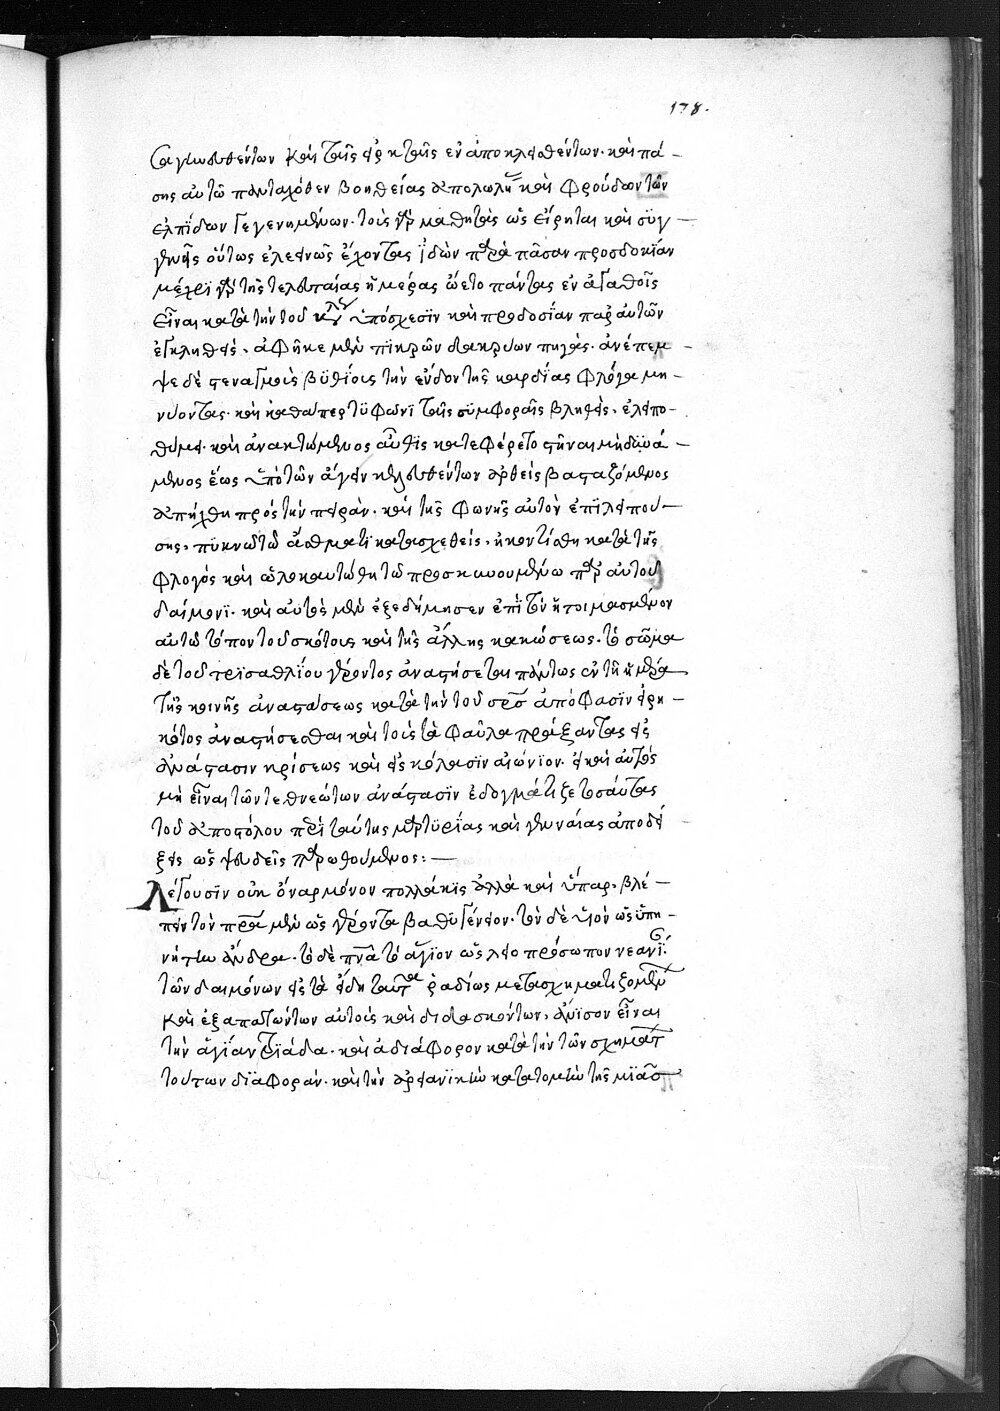 178.
σαγηνευθέντων καὶ ταῖς εἱρκταῖς ἐναποκλεισθέντων. καὶ πά-
σης αὐτῶ πανταχόθεν βοηθείας ἀπολωλυίης καὶ φρούδων τῶν
ἐλπίδων γεγενημένων. τοὺς γὰρ μαθητὰς ὡς εἴρηται καὶ συγ-
γενεῖς οὕτως ἐλεεινῶς ἔχοντας ἰδὼν παρὰ πᾶσαν προσδοκίαν
μέχρι γὰρ τῆς τελευταίας ἡμέρας ὤετο πάντας ἐν ἀγαθοῖς
εἶναι κατὰ τὴν τοῦ ὑπόσχεσϊν καὶ προδοσίαν παρ αὐτῶν
ἐγκληθεὶς, ἀφῆκε μὲν πϊκρῶν δακρύων πηγάς. ἀνέπεμ-
ψε δὲ στεναγμοὺς βϋθίοις τὴν ἔνδον τῆς καρδίας φλόγα μη-
νύοντας. καὶ καθαπερ τϋφωνϊ ταῖς σϋμφοραῖς βληθεὶς, ἐλειπο-
θύμει. καὶ ἀνακτώμενος αὖθϊς κατεφέρετο στῆναι μὴ δϋνά-
μενος ἕως ὑπὸ τῶν ἄγειν κελευθέντων ἀρθεὶς βασταζόμενος
ἀπήχθη πρὸς τὴν πυρὰν. καὶ τῆς φωνῆς αὐτὸν ἐπϊλειπού-
σης, πϋκνῶ τῶ ἄσθματϊ κατασχεθείς, ἠκοντίσθη κατὰ τῆς
φλογός καὶ ὡλοκαυτώθη τῶ προσκαιουμένω παρ αὐτοῦ
δαίμονϊ. καὶ αὐτὸς μὲν ἐξεδήμησεν ἐπὶ τὸν ἡτοιμασμένον
αὐτῶ τόπον τοῦ σκότους καὶ τῆς ἄλλης κακώσεως. τὸ σῶμα
δὲ τοῦ τρϊσαθλίου γέροντος ἀναστήσεται πάντως ἐν τῆ ἡμέρα
τῆς κοινῆς ἀναστάσεως κατὰ τὴν τοῦ σρς ἀπόφασϊν εἰρη-
κότος ἀναστήσεσθαι καὶ τοὺς τὰ φαῦλα πράξαντας εἰς
ἀνάστασιν κρίσεως καὶ εἰς κόλασϊν αἰώνϊον. εἰ καὶ αὐτὸς
μὴ εἶναι τῶν τεθνεώτων ἀνάστασϊν ἐδογμάτιζε τοσαύτας
τοῦ ἀποστόλου περὶ ταύτης μαρτϋρίας καὶ γενναίας ἀποδεί-
ξεις ὡς ψευδεῖς παρωθούμενος:—
Λέγουσϊν οὐκ ὄναρ μόνον πολλάκϊς ἀλλὰ καὶ ὕπαρ. βλέ-
πειν τὸν πρα μὲν ὡς γέροντα βαθϋγένειον. τὸν δὲ ϋἱὸν ὡς ὑπη-
νήτην ἄνδρα. τὸ δὲ πνα τὸ ἅγϊον ὡς λεῖο πρόσωπον νεανί.
τῶν δαιμόνων εἰς τὰ εἴδη ταῦτα ῥαδίως μετασχηματιζομένων
καὶ ἐξαπατώντων αὐτοὺς καὶ διδασκόντων, ἄνϊσον εἶναι
τὴν ἁγίαν τρϊάδα. καὶ ἀδιάφορον κατὰ τὴν τῶν σχημάτ
τούτων δϊαφορὰν. καὶ τὴν ἀρειανϊκὴν κατατομὴν τῆς μϊᾶς